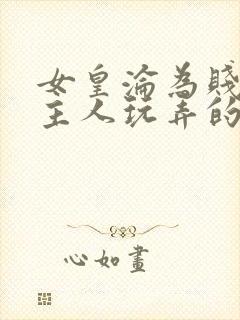 女皇淪為賤
主人玩弄的
心如畫